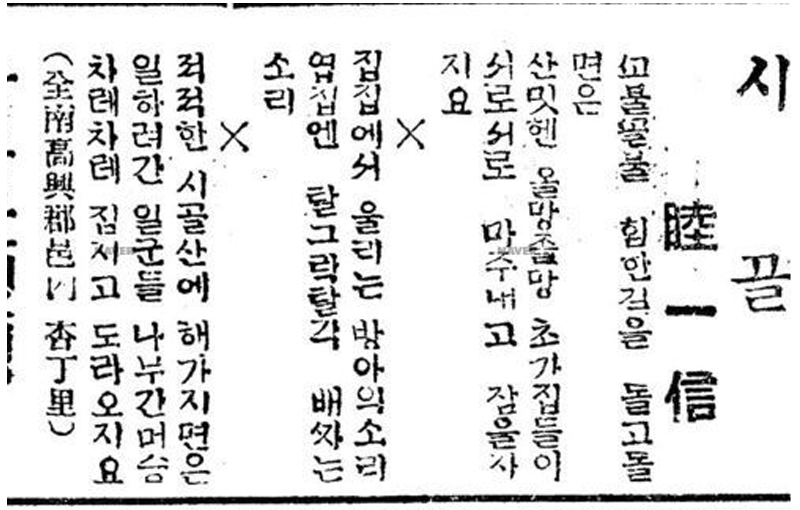 시꼴
睦一信
ᄭᅩ불ᄭᅩ불 험한길을 돌고돌
면은
산밋헨 올망졸망 초가집들이
서로서로 마주내고 잠을자
지요
×
집집에서 울리는 방아의소리
엽집엔 탈그락탈각 배ᄶᅡ는
소리
×
적적한 시골산에 해가지면은
일하러간 일군들 나무간머슴
차례차례 짐지고 도라오지요
(全南高興郡邑內 杏丁里)
NAVER
NAVER